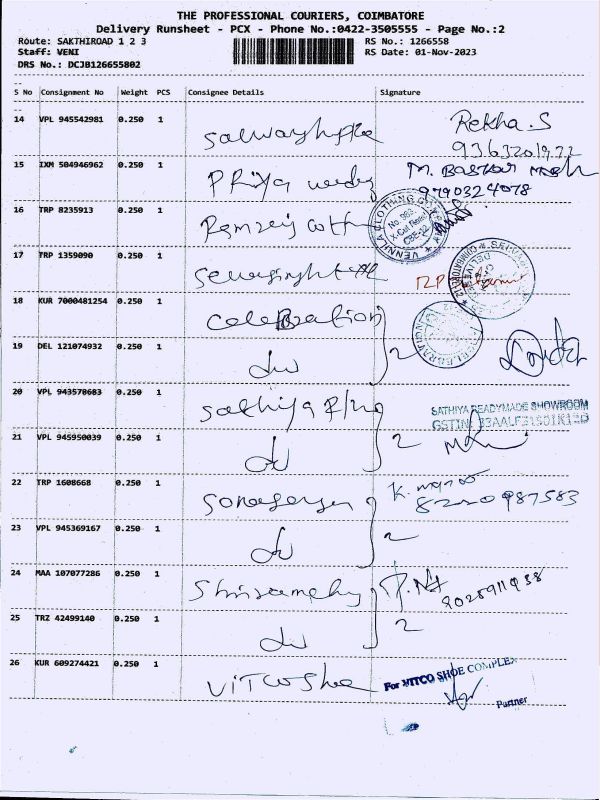 THE PROFESSIONAL COURIERS, COIMBATORE
Delivery Runsheet - PCX - Phone No.:0422-3505555 - Page No.:2
Route: SAKTHIROAD 1 2 3 RS No.: 1266558
Staff: VENI RS Date: 01-Nov-2023
DRS No.: DCJB126655802
S No Consignment No Weight PCS Consignee Details Signature
14 VPL 945542981 0.250 1 Rekha.S
9363201972
15 IXM 504946962 0.250 1 Priya M. Baskar
9790324078
16 TRP 8235913 0.250 1 VENNILA CLOTHING
No. 963
X-Cut Road
CBE-12
17 TRP 1359090 0.250 1
18 KUR 7000481254 0.250 1 Celebration 2
19 DEL 121074932 0.250 1 do
20 VPL 943578683 0.250 1 Sathiya SATHIYA READYMADE SHOWROOM
GSTIN:
21 VPL 945950039 0.250 1 do 2
22 TRP 1608668 0.250 1 K.
8220987583
23 VPL 945369167 0.250 1 do 2
24 MAA 107077286 0.250 1
25 TRZ 42499140 0.250 1 do 2
26 KUR 609274421 0.250 1 VITCO Shoe For VITCO SHOE COMPLEX
Partner